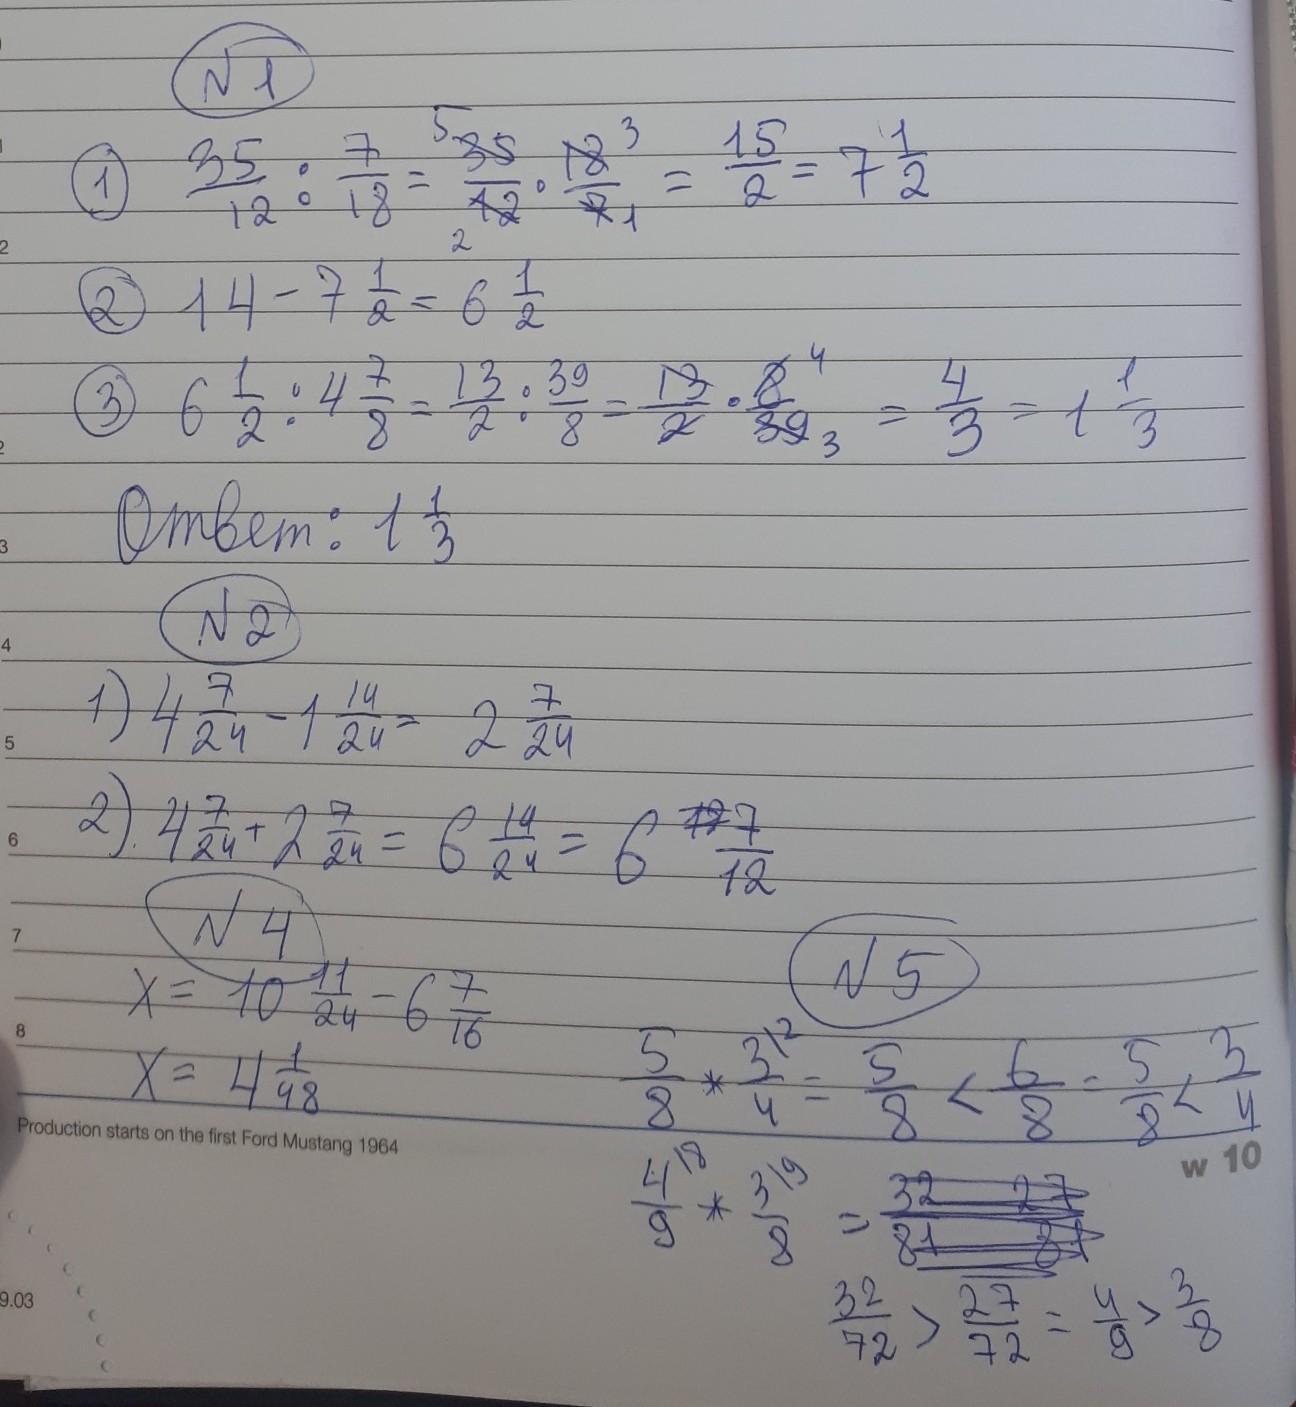 N1
① 35/12 : 7/18 = 5 35/12 2 · 18 3/7 1 = 15/2 = 7 1/2
② 14 - 7 1/2 = 6 1/2
③ 6 1/2 : 4 7/8 = 13/2 : 39/8 = 13/2 · 8 4/39 3 = 4/3 = 1 1/3
Ответ: 1 1/3
N2
1) 4 7/24 - 1 14/24 = 2 7/24
2). 4 7/24 + 2 7/24 = 6 14/24 = 6 7/12
N4
x = 10 11/24 - 6 7/16
x = 4 1/48
N5
5/8 * 3\2/4 = 5/8 < 6/8 = 5/8 < 3/4
4\8/9 * 3\9/8 = 32/81 27/81
32/72 > 27/72 = 4/9 > 3/8
Production starts on the first Ford Mustang 1964
w 10
1
2
2
3
4
5
6
7
8
9.03